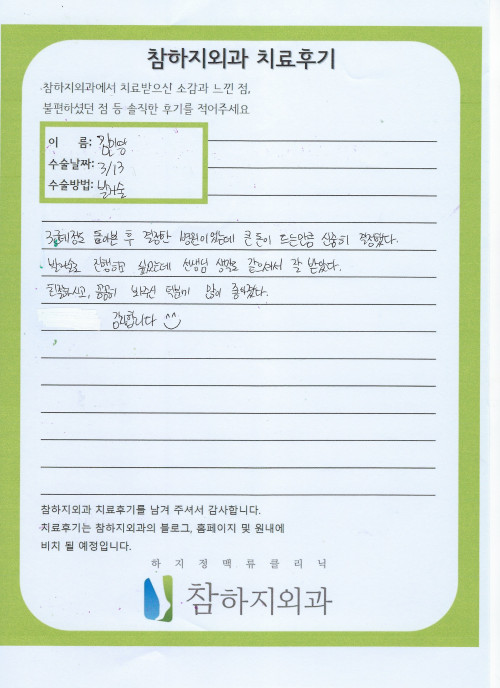 참하지외과 치료후기
참하지외과에서 치료받으신 소감과 느낀 점,
불편하셨던 점 등 솔직한 후기를 적어주세요
이 름: 김미영
수술날짜: 3/13
수술방법: 발거술
3군데정도 돌아본 후 결정한 병원이었는데 큰 돈이 드는만큼 신중히 결정했다.
발거술로 진행하고 싶었는데 선생님 생각도 같으셔서 잘 받았다.
친절하시고, 꼼꼼히 봐주신 덕분에 많이 좋아졌다.
감사합니다
참하지외과 치료후기를 남겨 주셔서 감사합니다.
치료후기는 참하지외과의 블로그, 홈페이지 및 원내에
비치 될 예정입니다.
하지정맥류클리닉
참하지외과